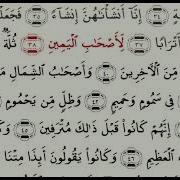 إِنَّا أَنشَأْنَٰهُنَّ إِنشَآءً ٣٥ فَجَعَلْ
أَتْرَابًا ٣٧ لِّأَصْحَٰبِ ٱلْيَمِينِ ٣٨ ثُلَّةٌ
مِّنَ ٱلْءَاخِرِينَ ٤٠ وَأَصْحَٰبُ ٱلشِّمَالِ مَ
فِى سَمُومٍ وَحَمِيمٍ ٤٢ وَظِلٍّ مِّن يَحْمُومٍ
إِنَّهُمْ كَانُوا۟ قَبْلَ ذَٰلِكَ مُتْرَفِينَ ٤٥
ٱلْعَظِيمِ ٤٦ وَكَانُوا۟ يَقُولُونَ أَئِذَا مِتْنَا